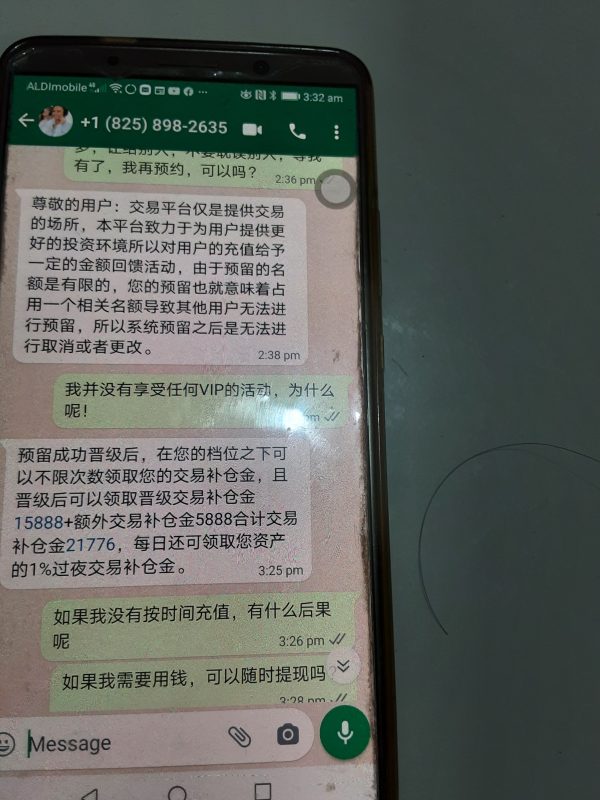 ALDImobile
3:32 am
+1 (825) 898-2635
有了，我再预约，可以吗？
2:36 pm
尊敬的用户：交易平台仅是提供交易
的场所，本平台致力于为用户提供更
好的投资环境所以对用户的充值给予
一定的金额回馈活动，由于预留的名
额是有限的，您的预留也就意味着占
用一个相关名额导致其他用户无法进
行预留，所以系统预留之后是无法进
行取消或者更改。
2:38 pm
我并没有享受任何VIP的活动，为什么
呢！
pm
预留成功晋级后，在您的档位之下可
以不限次数领取您的交易补仓金，且
晋级后可以领取晋级交易补仓金
15888+额外交易补仓金5888合计交易
补仓金21776，每日还可领取您资产
的1%过夜交易补仓金。
3:25 pm
如果我没有按时间充值，有什么后果
呢
3:26 pm
如果我需要用钱，可以随时提现吗
3:28 pm
Message